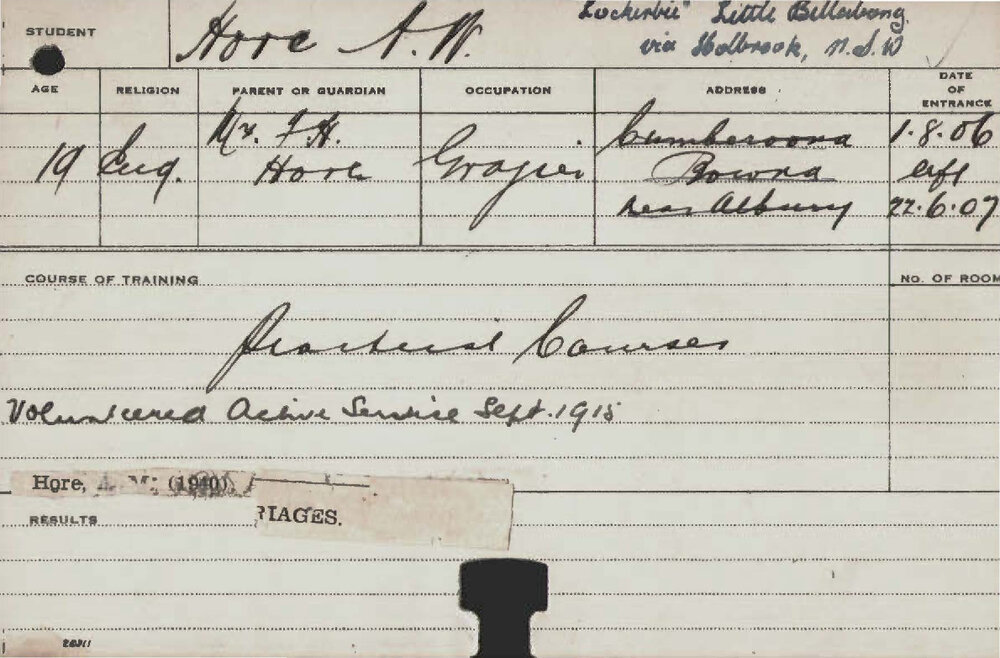 STUDENT
Hore A. W.
"Lockerbie" Little Billabong
via Holbrook, N.S.W
AGE RELIGION PARENT OR GUARDIAN OCCUPATION ADDRESS DATE OF ENTRANCE
19 Eng. Mr. F. H. Hore Grazier
Cumberoona
Bowna
near Albury
1.8.06
left
22.6.07
COURSE OF TRAINING
NO. OF ROOM
Practical Courses
Volunteered Active Service Sept. 1915
Hore, (1940)
RIAGES.
RESULTS